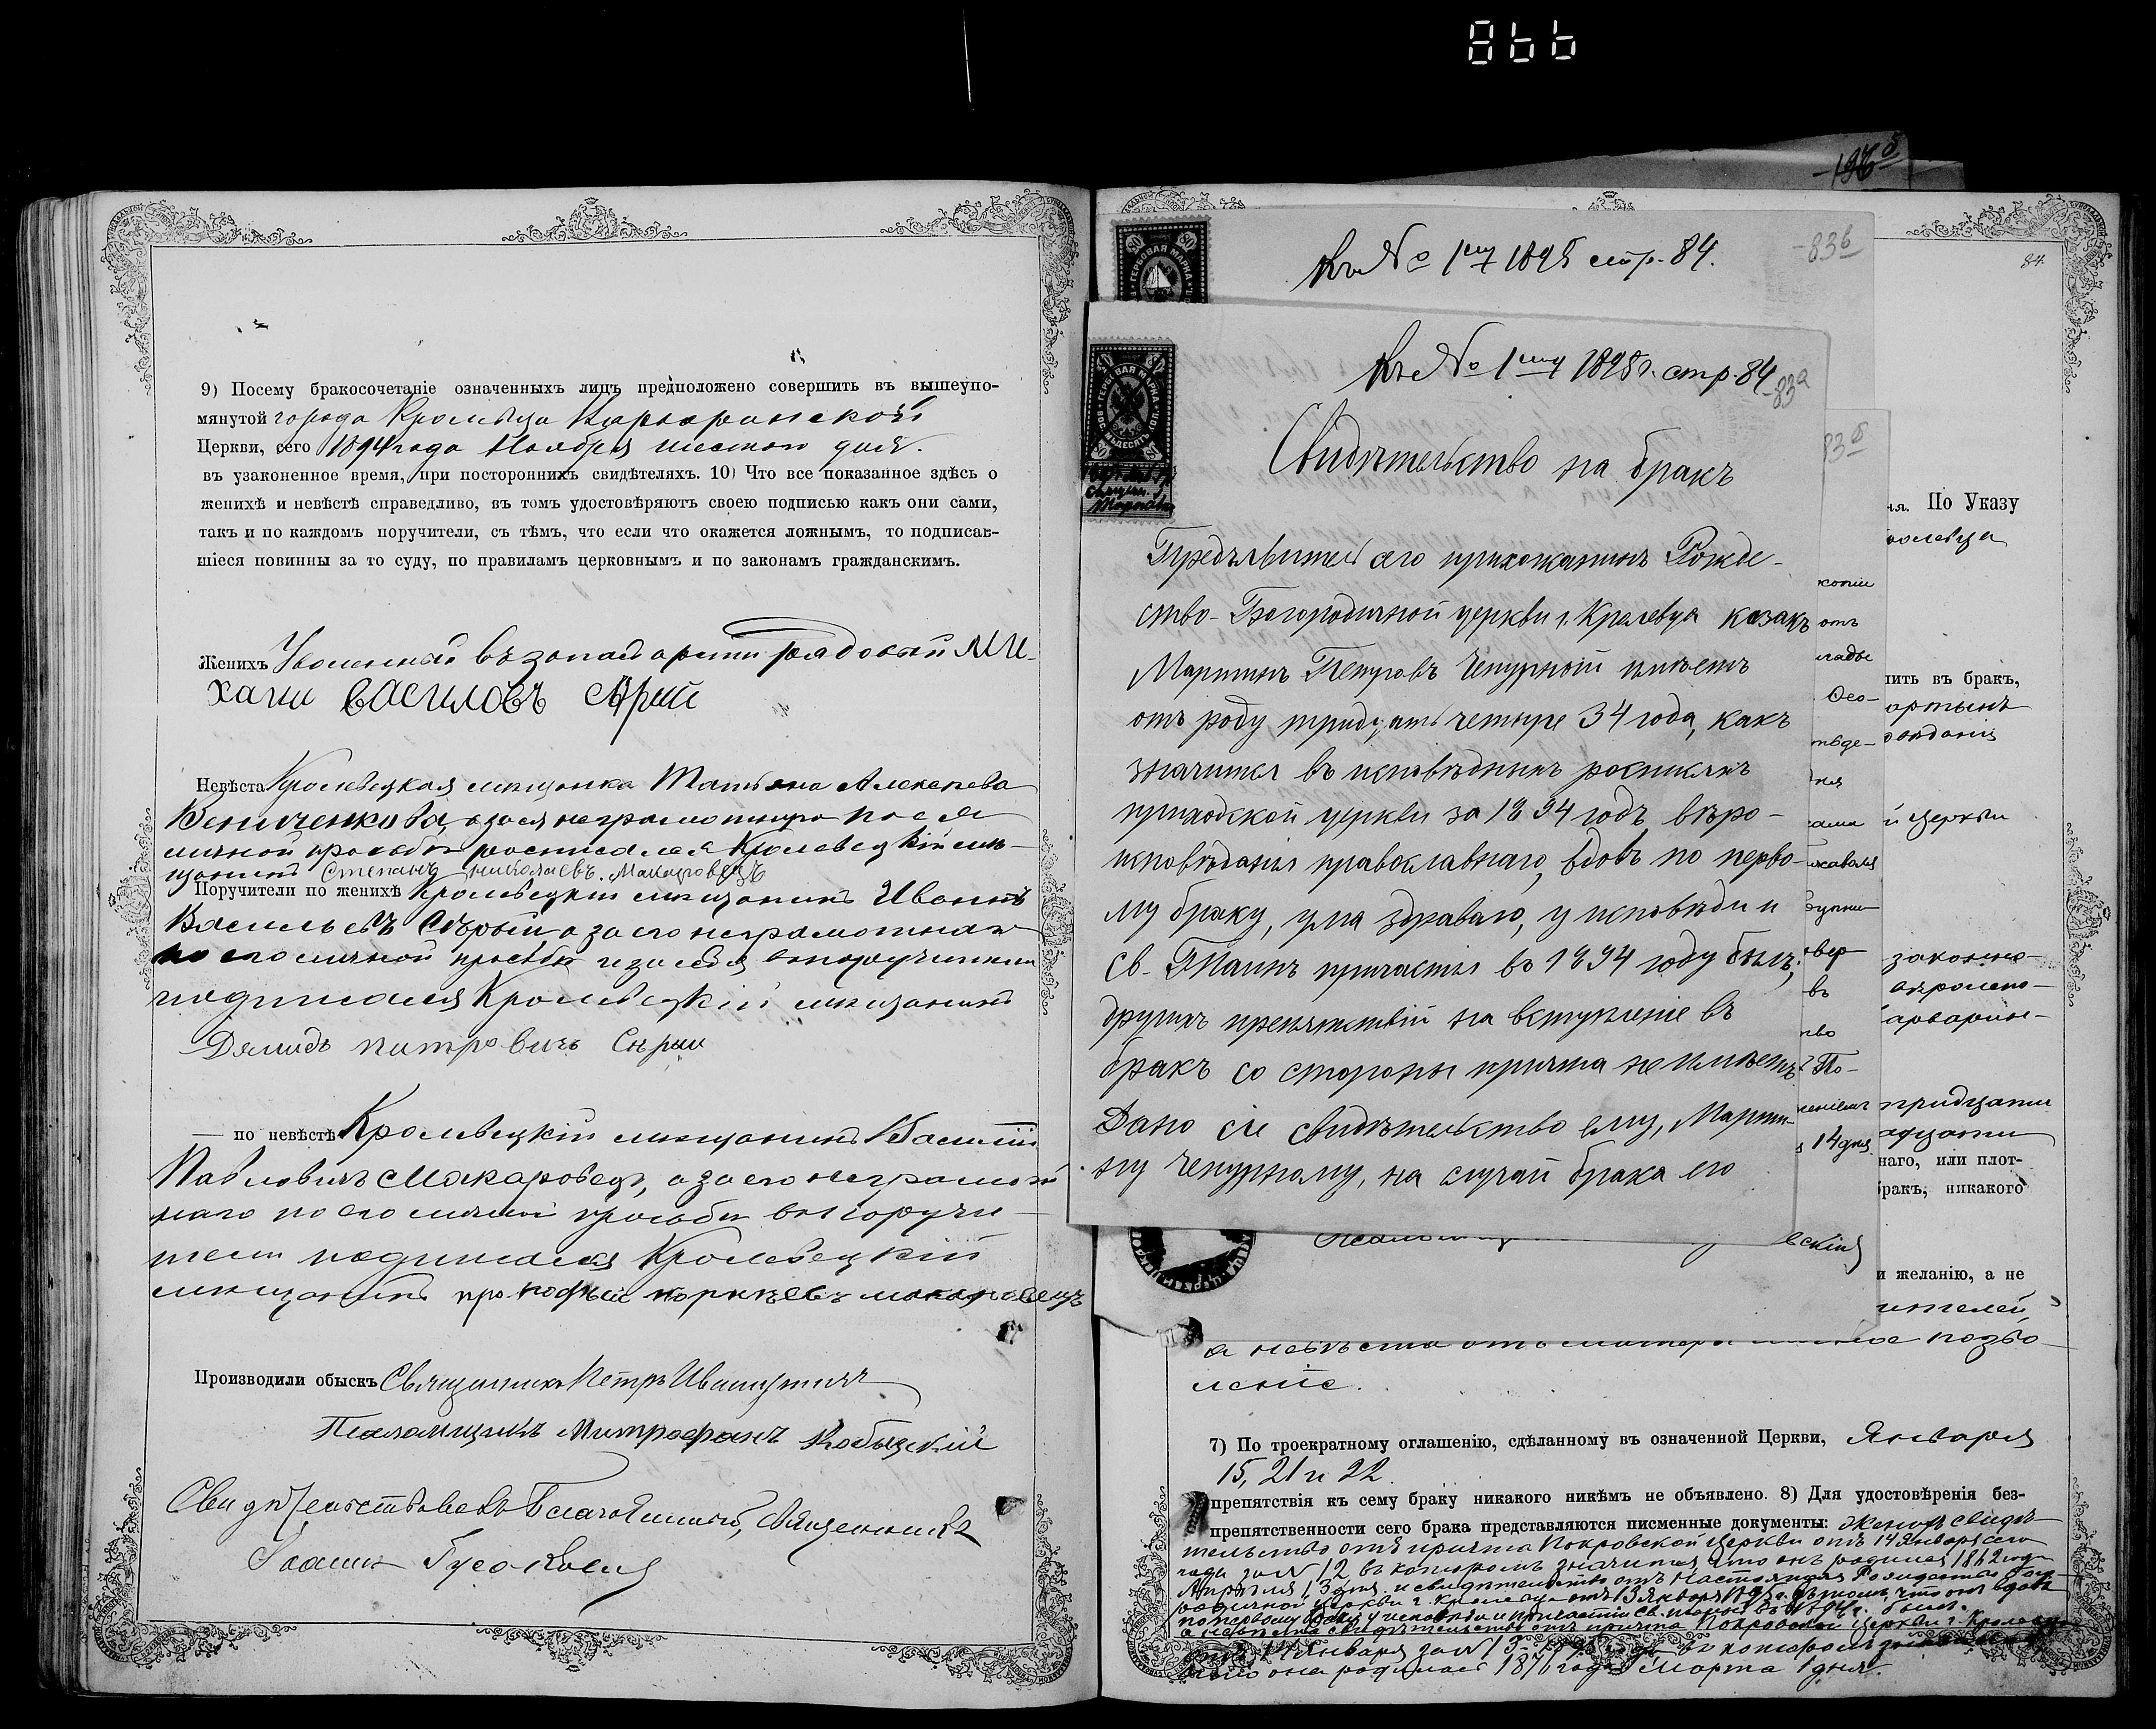 866
9) Посему бракосочетаніе означенныхъ лицъ предположено совершить въ вышеупо-
мянутой города Кролевца Варваринской
Церкви, сего 1894 года Ноября шестого дня.
въ узаконенное время, при постороннихъ свидѣтеляхъ. 10) Что все показанное здѣсь о
женихѣ и невѣстѣ справедливо, въ томъ удостовѣряютъ своею подписью какъ они сами,
такъ и по каждомъ поручители, съ тѣмъ, что если что окажется ложнымъ, то подписав-
шіеся повинны за то суду, по правиламъ церковнымъ и по законамъ гражданскимъ.
Женихъ Уволенный въ запас арміи рядовый Ми-
хаил Василовъ
Невѣста Кролевецкая мѣщанка Татьяна Алексѣева
а за ея неграмотную по ея
личной просьбѣ росписался Кролевецкій мѣ-
щанинъ Степанъ Николаевъ Макаровецъ
Поручители по женихѣ Кролевецкій мѣщанинъ Иванъ
Васильевъ Сѣрый а за его неграмотнаго
по его личной просьбѣ и за себя
подписался Кролевецкій мѣщанинъ
Демидъ питровичь Сѣрый
— по невѣстѣ Кролевецкій мѣщанинъ Василій
Павловичъ Макаровецъ, а за его неграмот
наго по его личной просьбѣ
подписался Кролевецкій
мѣщанинъ прокофий макаровецъ
Производили обыскъ Священникъ Петръ
Псаломщикъ Митрофанъ Кобыцкій
Свидѣтельствовалъ Благочинный, Священникъ
196
Къ № 1му 1895 стр. 84.
83б
84.
Къ № 1му 1895 г. стр. 84
83а
ГЕРБОВАЯ МАРКА
80
Свидѣтельство на бракъ
Предъявитель сего прихожанинъ Рожде-
ство-Богородичной церкви г. Кролевца казакъ
Мартинъ Петровъ Чепурный имѣетъ
отъ роду тридцать четыре 34 года, какъ
значится въ исповѣдныхъ росписяхъ
приходской церкви за 1894 годъ вѣро-
исповѣданія православнаго, вдовъ по перво-
му браку, ума здраваго, у исповѣди и
св. Таинъ причастія въ 1894 году былъ;
другихъ препятствій на вступленіе въ
бракъ со стороны причта не имѣетъ.
Дано сіе свидѣтельство ему, Марти-
ну Чепурному, на случай брака его
83в
копіи
отъ
14 дня
По Указу
ить въ бракъ,
й Церкви
законно-
тридцати
наго, или плот-
бракъ, никакого
и желанію, а не
ителей,
а невѣста отъ матери позво-
леніе.
7) По троекратному оглашенію, сдѣланному въ означенной Церкви, Января
15, 21 и 22
препятствія къ сему браку никакого никѣмъ не объявлено. 8) Для удостовѣренія без-
препятственности сего брака представляются писменные документы: Женихъ свидѣ-
тельство отъ причта Покровской Церкви отъ 14 Января сего
года за № 12 въ которомъ значится что онъ родился 1862 года
Апрѣля 13 дня и свидѣтельство отъ Рождество Бого-
родичной церкви г. Кролевца отъ 13 Января 1895 г. въ томъ, что онъ вдовъ
по первому браку у исповѣди и причастія св. таинъ въ 1894 г. былъ.
а невѣста свидѣтельство отъ причта Покровской церкви г. Кролевца
отъ 14 Января за № 13 въ которомъ значится
что она родилась 1871 года Марта 1 дня.